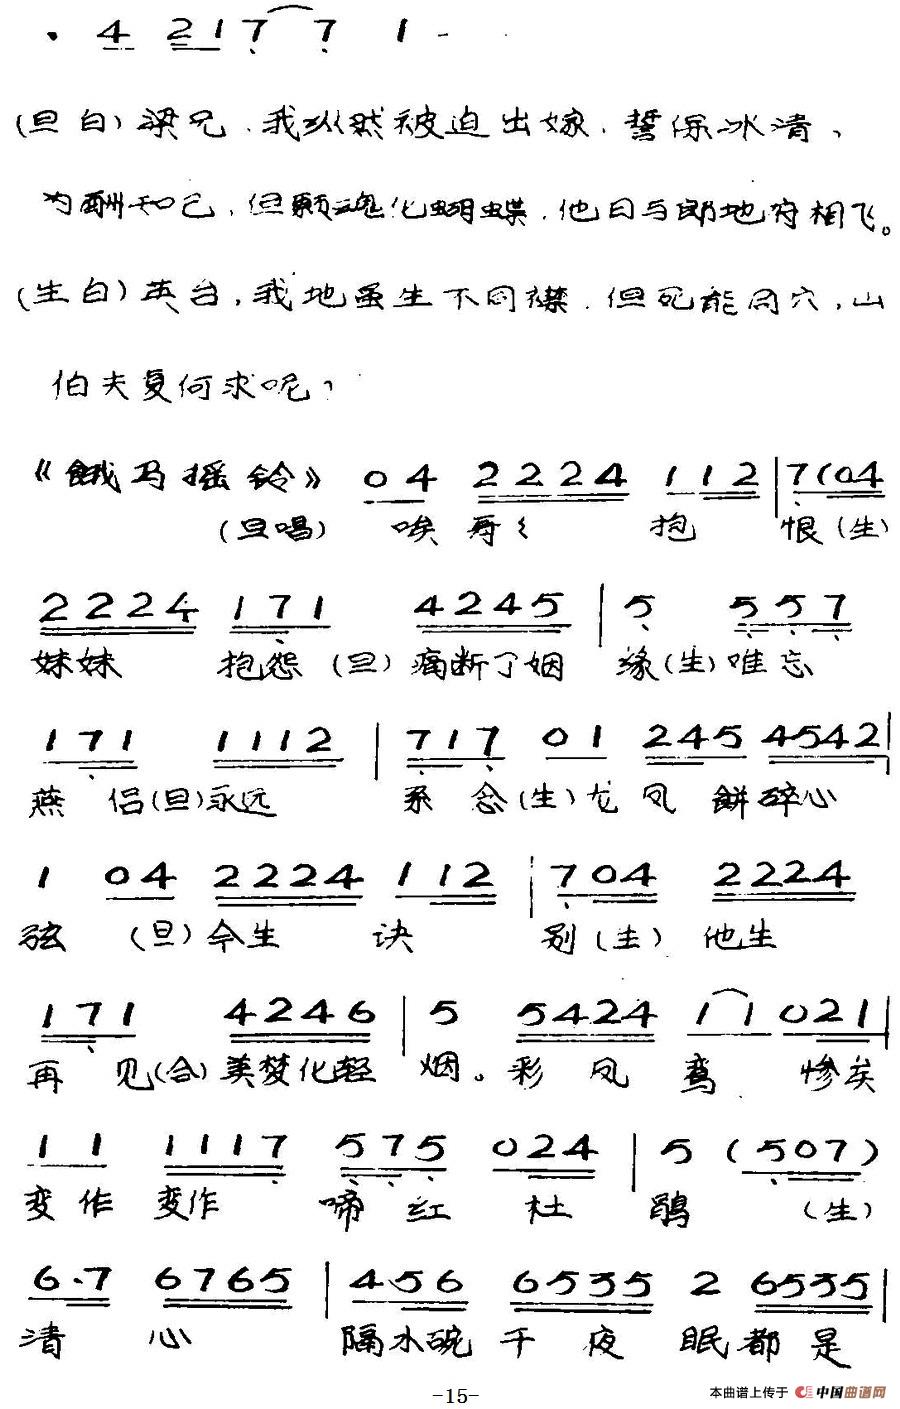 · 4 2 1 7 7 1 -
(旦白)梁兄.我纵然被迫出嫁.誓保冰清、
为酬知己.但愿魂化蝴蝶.他日与郎地府相飞。
(生白)英台,我地虽生不同襟.但死能同穴,山
伯夫复何求呢?
《饿马摇铃》 0 4 2 2 2 4 1 1 2 | 7 (04
(旦唱) 唉 哥〻 抱 恨(生)
2 2 2 4 1 7 1 4 2 4 5 | 5 5 5 7
妹妹 抱怨(旦)痛断了姻 缘(生)唯忘
1 7 1 1 1 1 2 | 7 1 7 0 1 2 4 5 4 5 4 2 |
燕 侣(旦)永远 系 念(生)龙 凤 餅 碎心
1 0 4 2 2 2 4 1 1 2 | 7 0 4 2 2 2 4
弦 (旦)今生 诀 别(生) 他生
1 7 1 4 2 4 6 | 5 5 4 2 4 1 1 0 2 1 |
再 见(合)美梦化轻 烟。彩 凤 鸾 惨矣
1 1 1 1 1 7 5 7 5 0 2 4 | 5 (5 0 7)
变作 变作 啼 红 杜 鹃 (生)
6 . 7 6 7 6 5 | 4 . 5 6 6 5 3 5 2 6 5 3 5 |
清 心 隔水碗 千 夜 眠都 是
-15-
本曲谱上传于 中国曲谱网